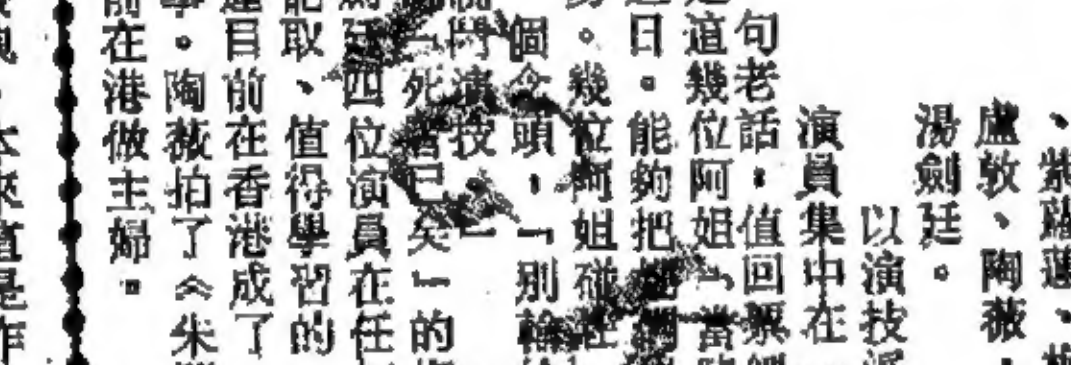 、紫蘿蓮、梅
盧敦、陶薇、
湯劍廷。
以演技派
演員集中在
句老話，值回票
道幾位阿姐「當
日。能夠把
。幾位阿姐碰在
個念頭，「別輸
鬥演技，」
「死者已矣」的
四位演員在任
取、值得學習的
目前在香港成了
。陶薇拍了《朱
前在港做主婦。
本來直是作